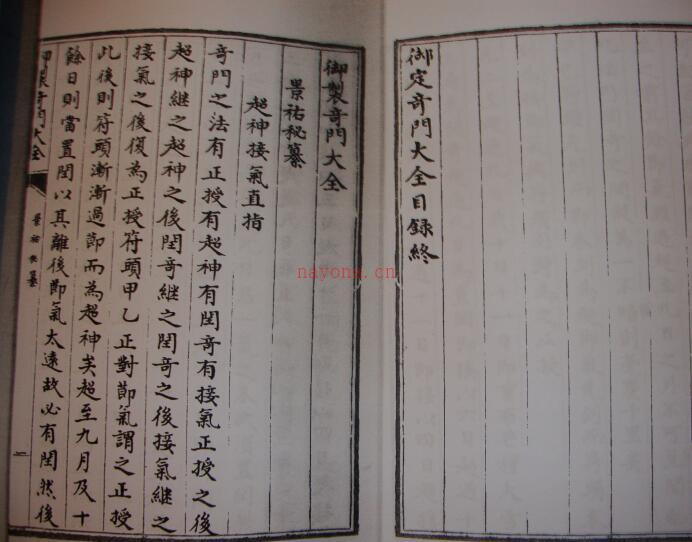 御定竒門大全目録終
御製竒門大全
景祐秘纂
超神接氣直指
竒門之法有正授有超神有閏竒有接氣正授之後
超神継之超神之後閏竒継之閏竒之後接氣継之
接氣之後復為正授符頭甲乙正對節氣謂之正授
此後則符頭漸漸過節而為超神矣超至九月及十
餘日則當置閏以其離後節氣太遠故必有閏然後
御製竒門大全
景祐秘纂
一
nayong.cn